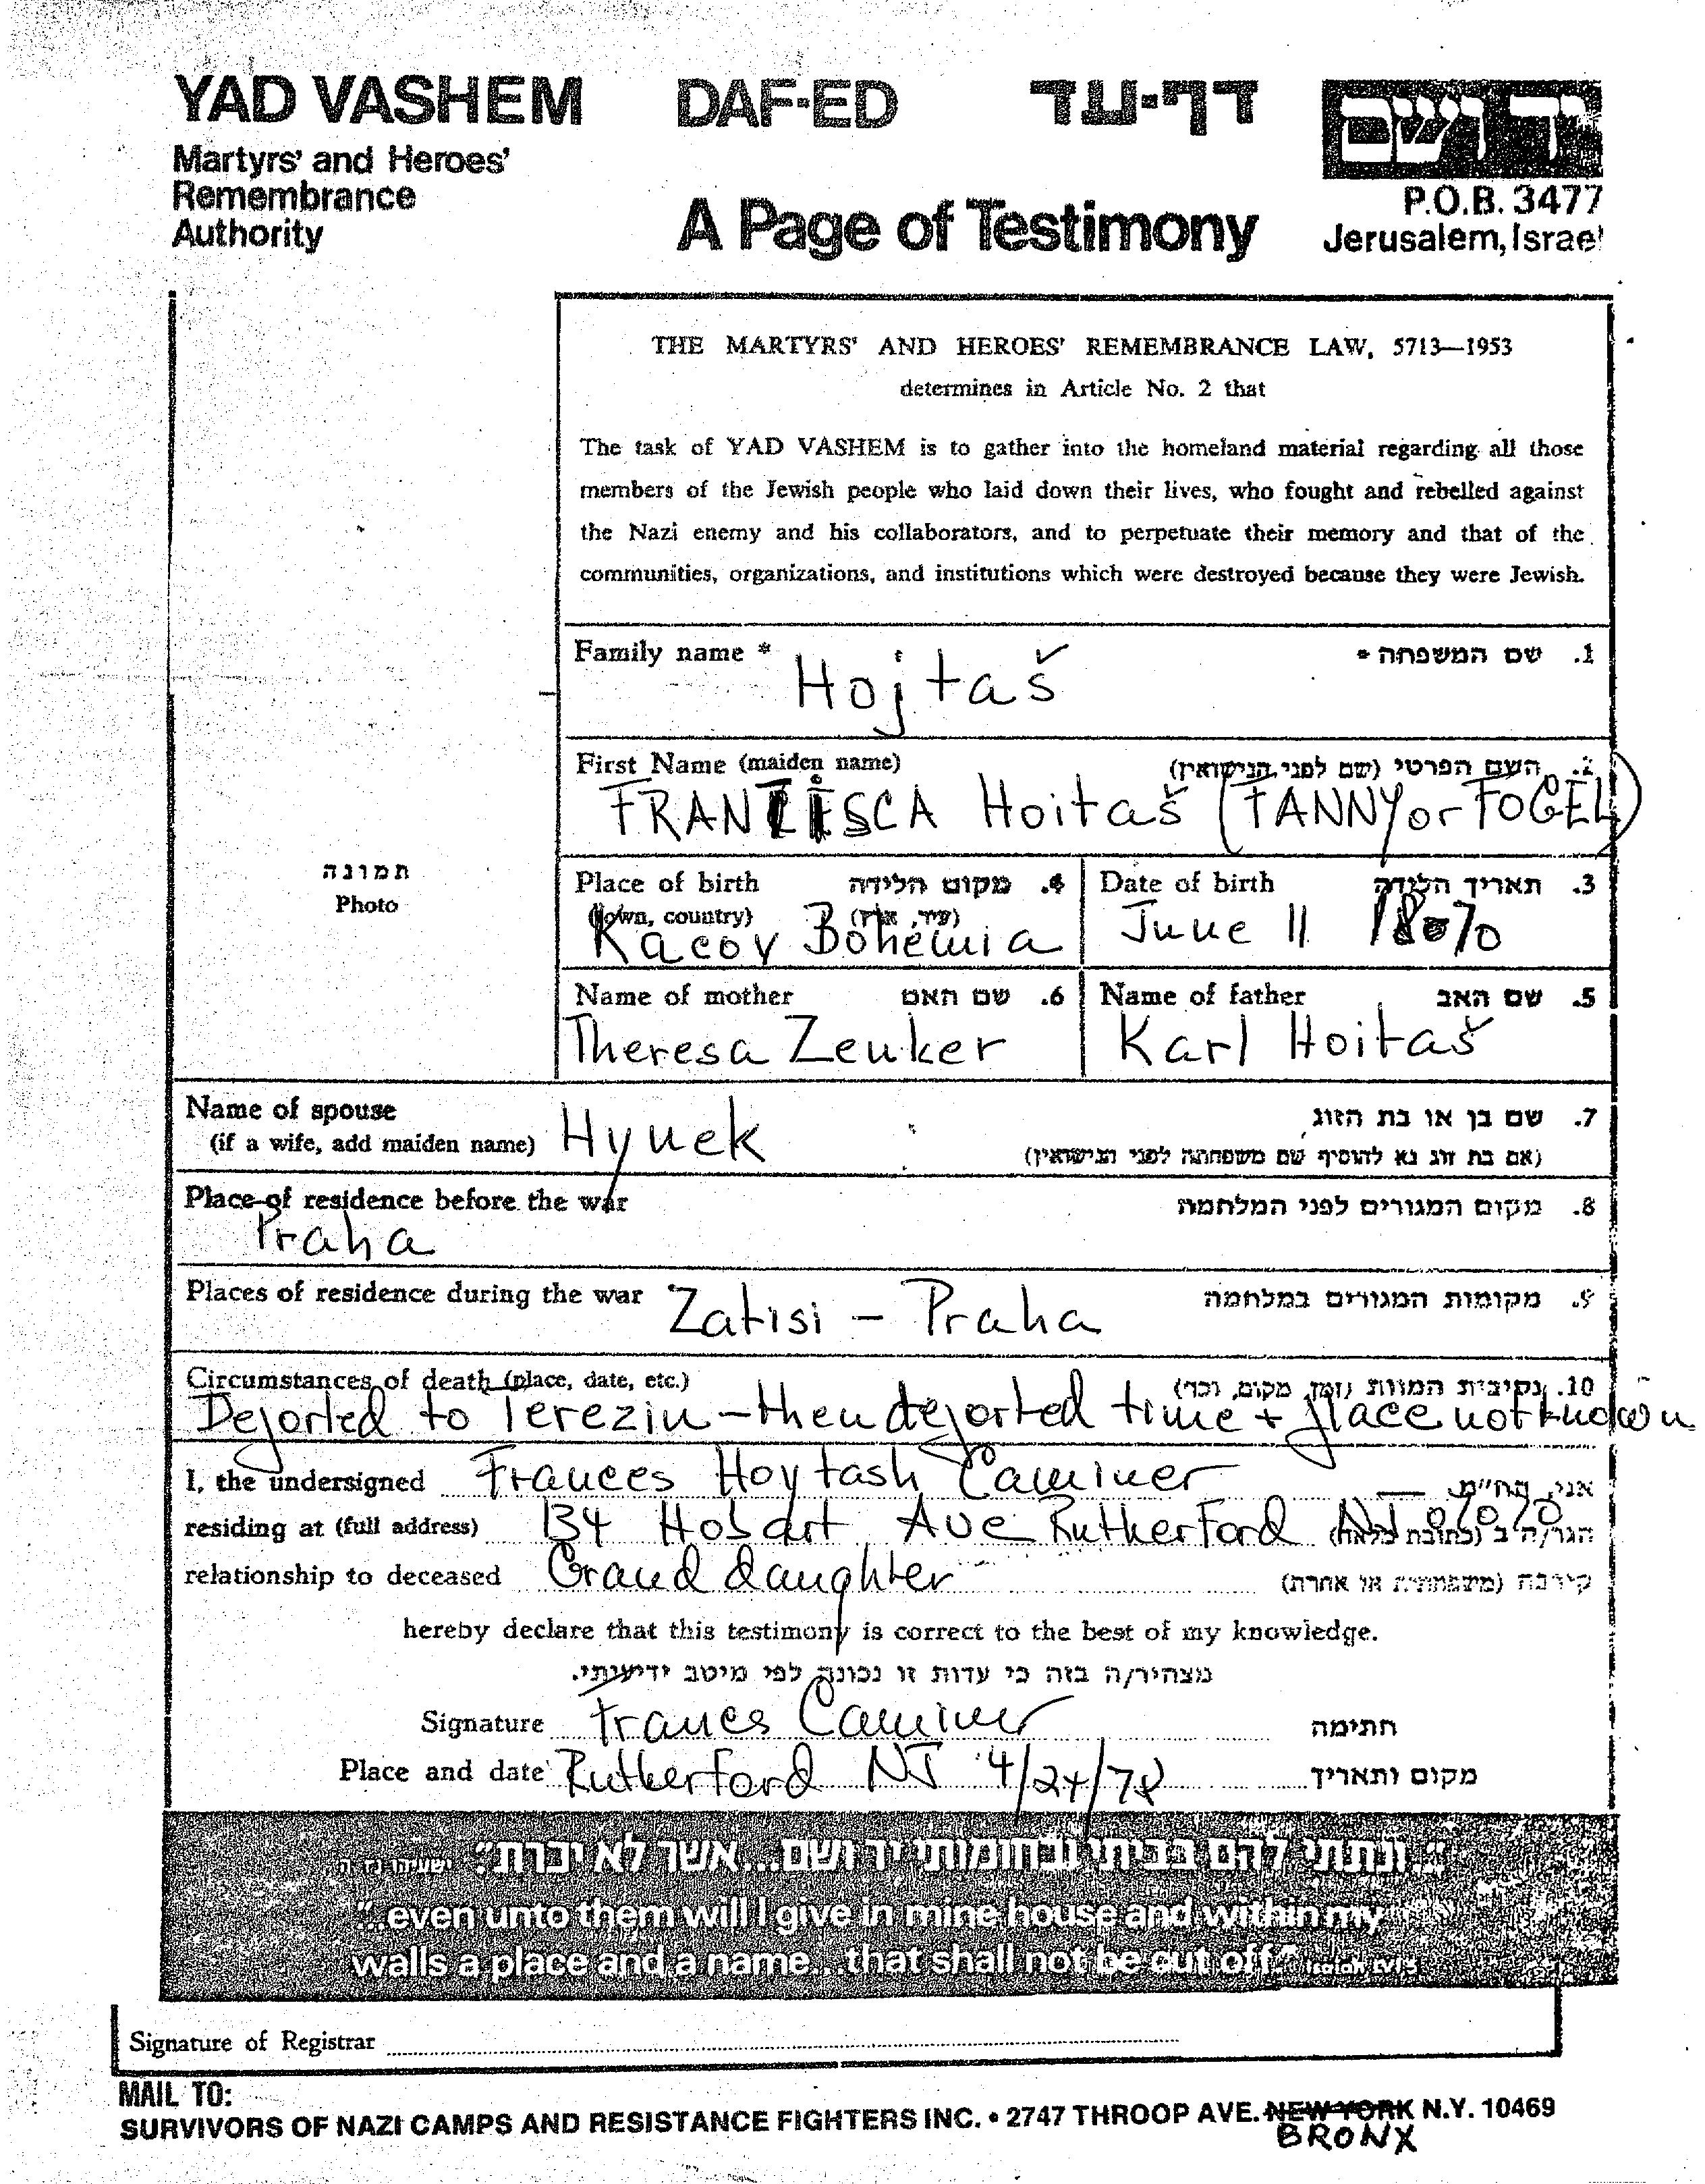 YAD VASHEM DAF-ED דף-עד
Martyrs' and Heroes'
Remembrance
Authority
A Page of Testimony
P.O.B. 3477
Jerusalem, Israel
THE MARTYRS' AND HEROES' REMEMBRANCE LAW, 5713—1953
determines in Article No. 2 that
The task of YAD VASHEM is to gather into the homeland material regarding all those
members of the Jewish people who laid down their lives, who fought and rebelled against
the Nazi enemy and his collaborators, and to perpetuate their memory and that of the
communities, organizations, and institutions which were destroyed because they were Jewish.
Family name * .1 שם המשפחה *
Hojtaš
First Name (maiden name) .2 השם הפרטי (שם לפני הנישואין)
Hoitaš (FANNY or FOGEL)
תמונה
Photo
Place of birth .4 מקום הלידה
(town, country) (עיר, ארץ)
Kacov Bohemia
Date of birth .3 תאריך הלידה
June 11 1870
Name of mother .6 שם האם
Theresa Zenker
Name of father .5 שם האב
Karl Hoitaš
Name of spouse .7 שם בן או בת הזוג
(if a wife, add maiden name) Hynek (אם בת זוג נא להוסיף שם משפחתה לפני הנישואין)
Place of residence before the war .8 מקום המגורים לפני המלחמה
Praha
Places of residence during the war Zatisi – Praha .9 מקומות המגורים במלחמה
Circumstances of death (place, date, etc.) .10 נסיבות המוות (זמן, מקום, וכו')
Deported to Terezin – then deported time + place not known
I, the undersigned Frances Hoytash Caminer אני, הח"מ
residing at (full address) 134 Hobart Ave Rutherford NJ 07070 הגר/ה ב (כתובת מלאה)
relationship to deceased Grand daughter קירבה (משפחתית או אחרת)
hereby declare that this testimony is correct to the best of my knowledge.
מצהיר/ה בזה כי עדות זו נכונה לפי מיטב ידיעתי.
Signature Frances Caminer חתימה
Place and date Rutherford NJ 4/24/78 מקום ותאריך
"...ונתתי להם בביתי ובחומותי יד ושם...אשר לא יכרת" ישעיהו נו ה
"...even unto them will I give in mine house and within my
walls a place and a name... that shall not be cut off." Isaiah lvi 5
Signature of Registrar
MAIL TO:
SURVIVORS OF NAZI CAMPS AND RESISTANCE FIGHTERS INC. • 2747 THROOP AVE. NEW YORK N.Y. 10469
BRONX